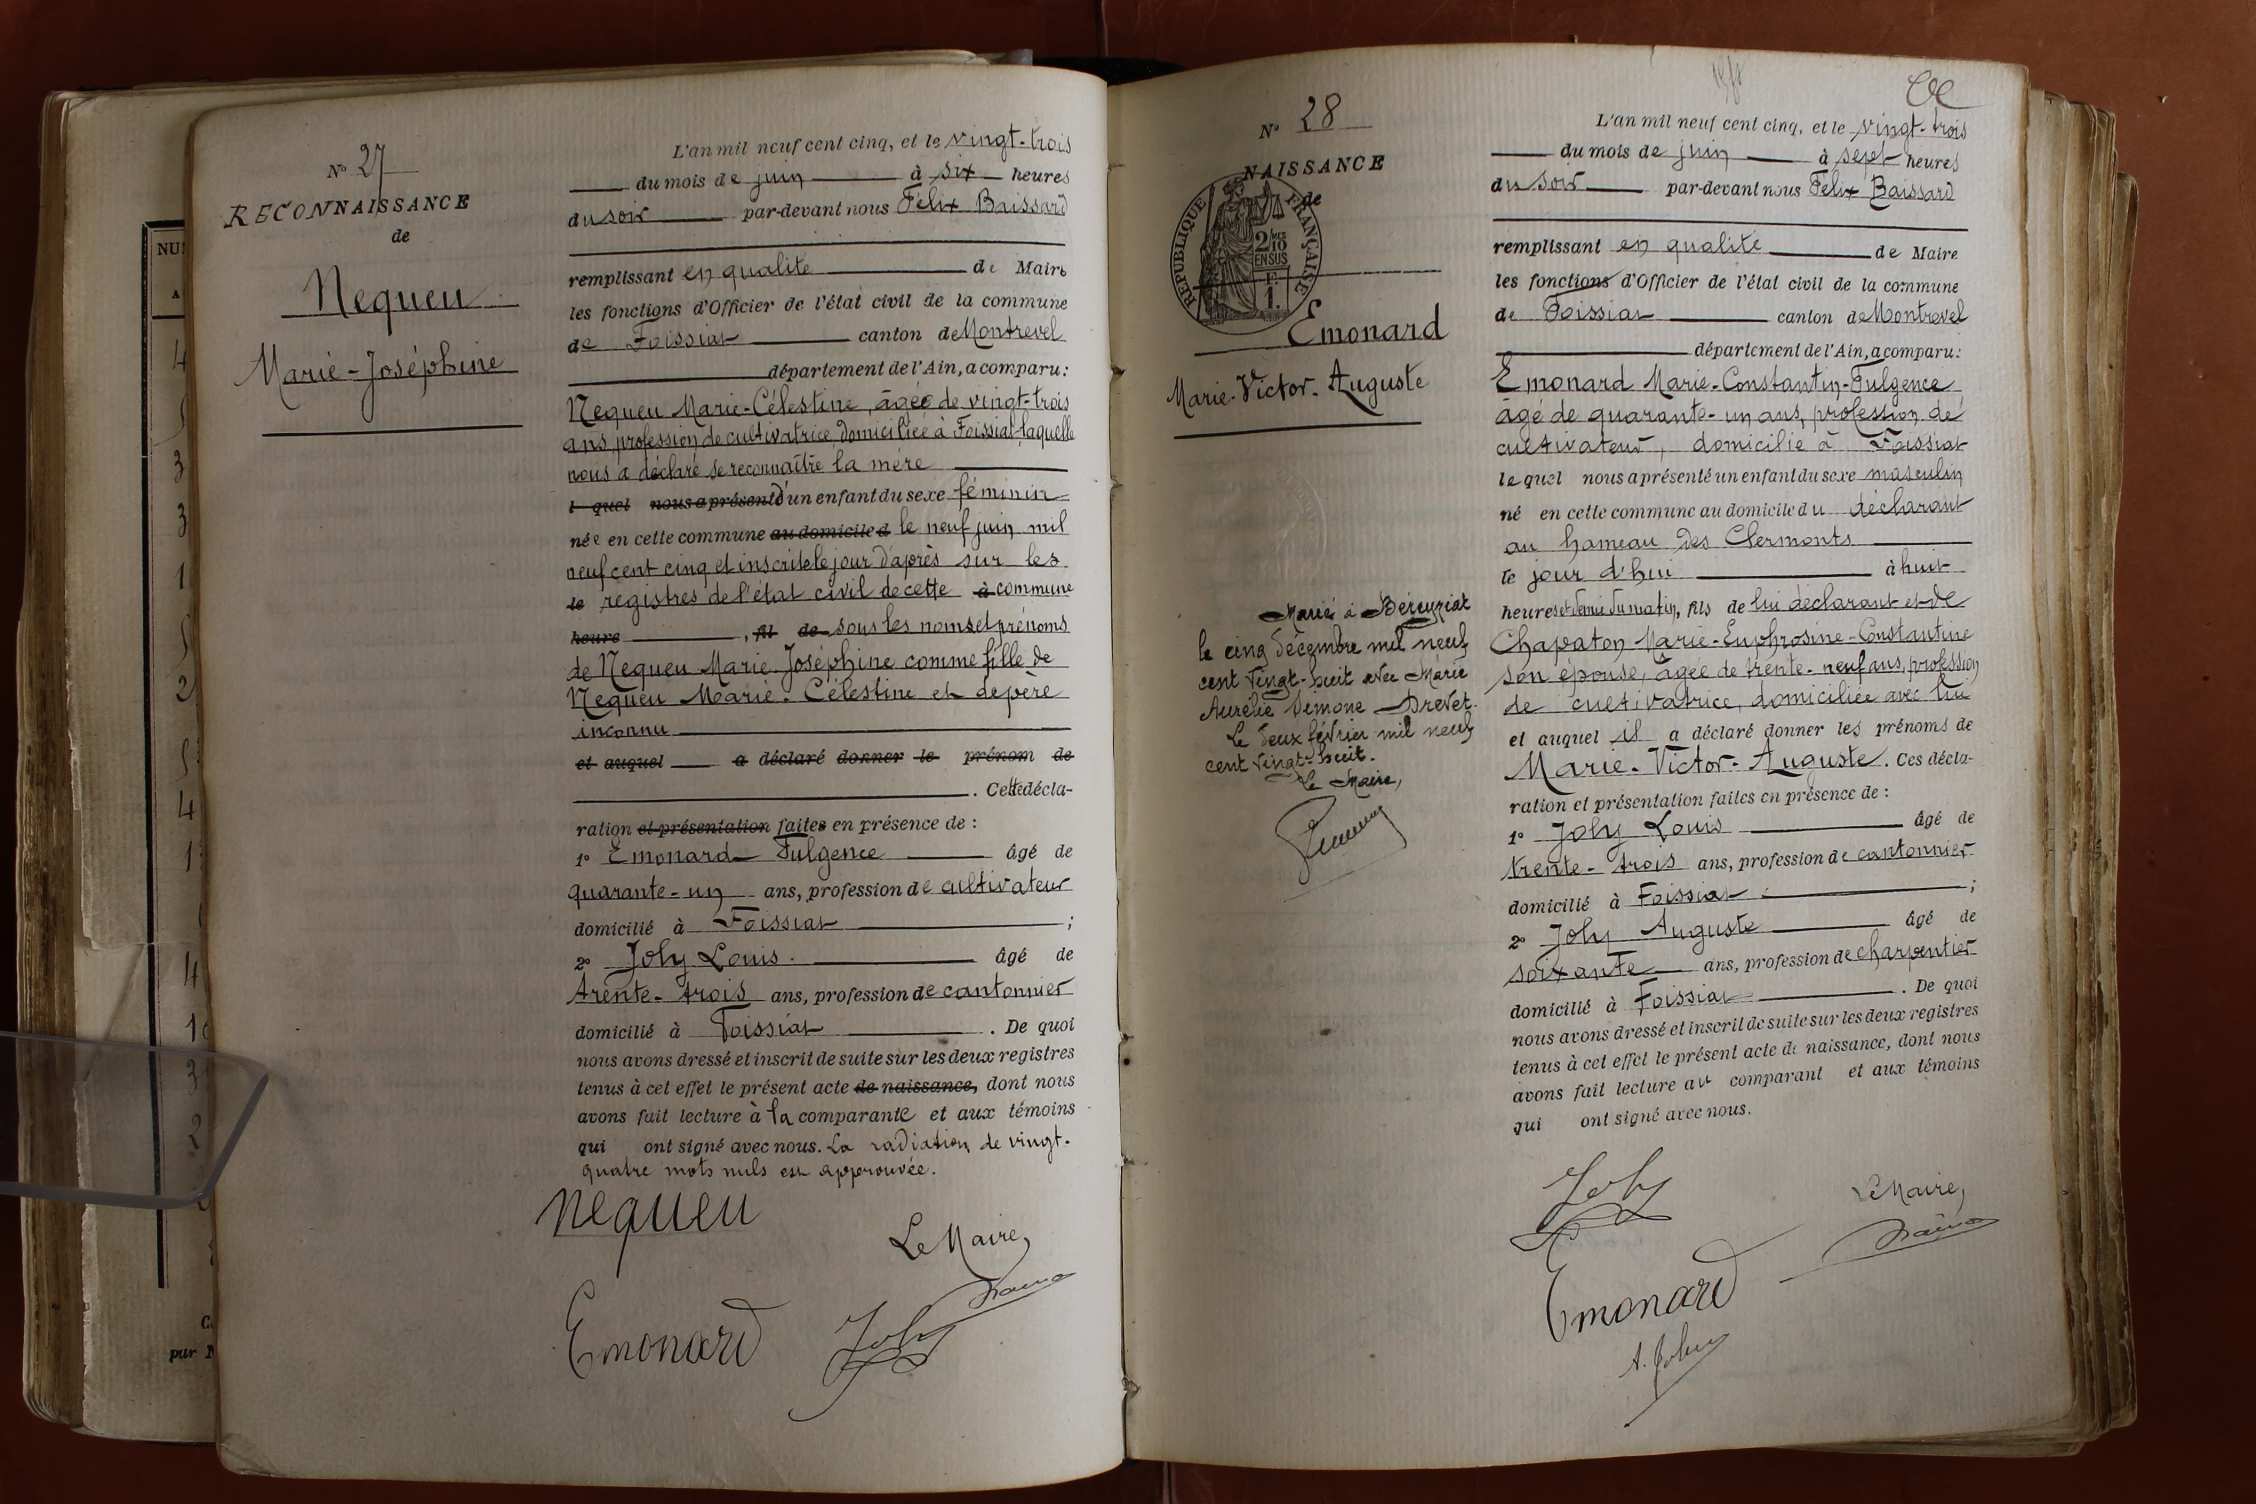 NU
A
4
3
3
1
2
4
1
4
1
3
2
C
par M
N° 27
RECONNAISSANCE
de
Nequeu
Marie-Joséphine
L'an mil neuf cent cinq, et le vingt-trois
du mois de juin à six heures
du soir par-devant nous Félix Baissard
remplissant en qualité de Maire
les fonctions d'Officier de l'état civil de la commune
de Foissiat canton de Montrevel
département de l'Ain, a comparu:
Nequeu Marie-Célestine, âgée de vingt-trois
ans, profession de cultivatrice domiciliée à Foissiat laquelle
nous a déclaré se reconnaître la mère
l quel nous a présenté d'un enfant du sexe féminin
née en cette commune au domicile d le neuf juin mil
neuf cent cinq et inscrite le jour d'après sur les
le registres de l'état civil de cette à commune
heure , fil de sous les noms et prénoms
de Nequeu Marie Joséphine comme fille de
Nequeu Marie-Célestine et de père
inconnu
et auquel a déclaré donner le prénom de
. Cette décla-
ration et présentation faites en présence de :
1° Emonard Fulgence âgé de
quarante-un ans, profession de cultivateur
domicilié à Foissiat ;
2° Joly Louis. âgé de
trente-trois ans, profession de cantonnier
domicilié à Foissiat . De quoi
nous avons dressé et inscrit de suite sur les deux registres
tenus à cet effet le présent acte de naissance, dont nous
avons fait lecture à la comparante et aux témoins
qui ont signé avec nous. La radiation de vingt-
quatre mots nuls est approuvée.
Nequeu
Le Maire,
Emonard
Joly
N° 28
NAISSANCE
de
RÉPUBLIQUE FRANÇAISE
2/10 MES
EN SUS
F.
1.
Emonard
Marie-Victor-Auguste
Marié à Béreyziat
le cinq décembre mil neuf
cent vingt-huit avec Marie
Aurélie Simone Drevet.
Le deux février mil neuf
cent vingt-huit.
Le Maire,
L'an mil neuf cent cinq, et le vingt-trois
du mois de juin à sept heures
du soir par-devant nous Félix Baissard
remplissant en qualité de Maire
les fonctions d'Officier de l'état civil de la commune
de Foissiat canton de Montrevel
département de l'Ain, a comparu:
Emonard Marie-Constantin-Fulgence
âgé de quarante-un ans, profession de
cultivateur, domicilié à Foissiat
lequel nous a présenté un enfant du sexe masculin
né en cette commune au domicile du déclarant
au hameau des Clermonts
le jour d'hui à huit
heures et demie du matin, fils de lui déclarant et de
Chapaton Marie-Euphrosine-Constantine
son épouse, âgée de trente-neuf ans, profession
de cultivatrice, domiciliée avec lui
et auquel il a déclaré donner les prénoms de
Marie-Victor-Auguste. Ces décla-
ration et présentation faites en présence de :
1° Joly Louis âgé de
trente-trois ans, profession de cantonnier
domicilié à Foissiat ;
2° Joly Auguste âgé de
soixante ans, profession de charpentier
domicilié à Foissiat . De quoi
nous avons dressé et inscrit de suite sur les deux registres
tenus à cet effet le présent acte de naissance, dont nous
avons fait lecture au comparant et aux témoins
qui ont signé avec nous.
Joly
Le Maire,
Emonard
A. Joly